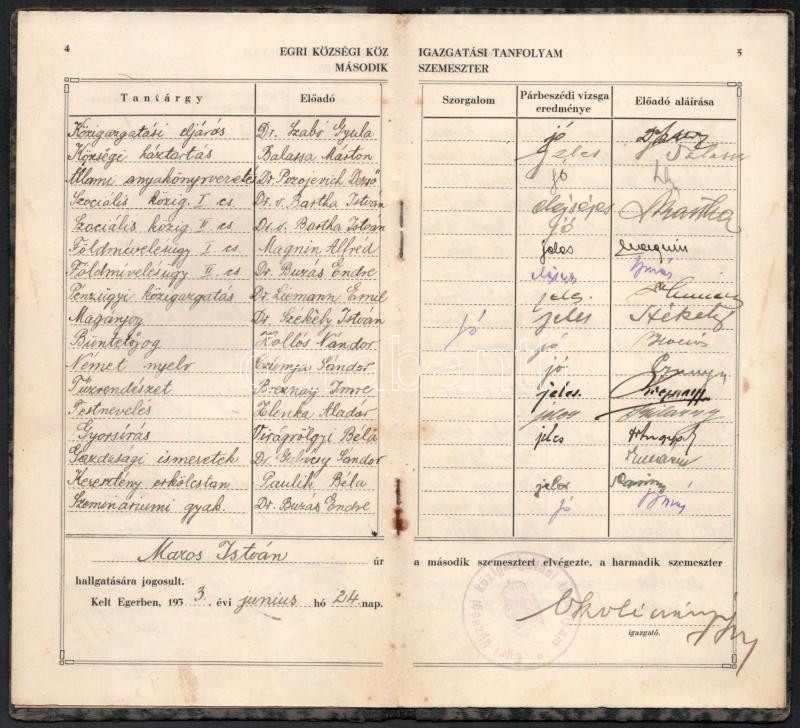 4
EGRI KÖZSÉGI KÖZ IGAZGATÁSI TANFOLYAM
5
MÁSODIK SZEMESZTER
Tantárgy Előadó Szorgalom Párbeszédi vizsga eredménye Előadó aláírása
Közigazgatási eljárás Dr. Szabó Gyula jó
Községi háztartás Balassa Márton jeles Balassa
Állami anyakönyvvezetés Dr. Pozojevich Dezső jó
Szociális közig. I cs. Dr. v. Bartha István elégséges Bartha
Szociális közig. II cs. Dr. v. Bartha István jó
Földmívelésügy I cs. Magnin Alfréd jeles Magnin
Földmívelésügy II cs. Dr. Buzás Endre Buzás
Pénzügyi közigazgatás Dr. Liemann Emil jeles
Magánjog Dr. Székely István jeles Székely
Büntetőjog Kollós Nándor jó jó
Német nyelv Sándor jó
Tűzrendészet Breznay Imre jeles. Breznay
Testnevelés Zelenka Aladár
Gyorsírás Virágvölgyi Béla jeles
Gazdasági ismeretek Dr. Sándor
Keresztény erkölcstan Paulik Béla jeles
Szemináriumi gyak. Dr. Buzás Endre jó Buzás
Maros István úr a második szemesztert elvégezte, a harmadik szemeszter
hallgatására jogosult.
Kelt Egerben, 1933. évi junius hó 24. nap.
igazgató.